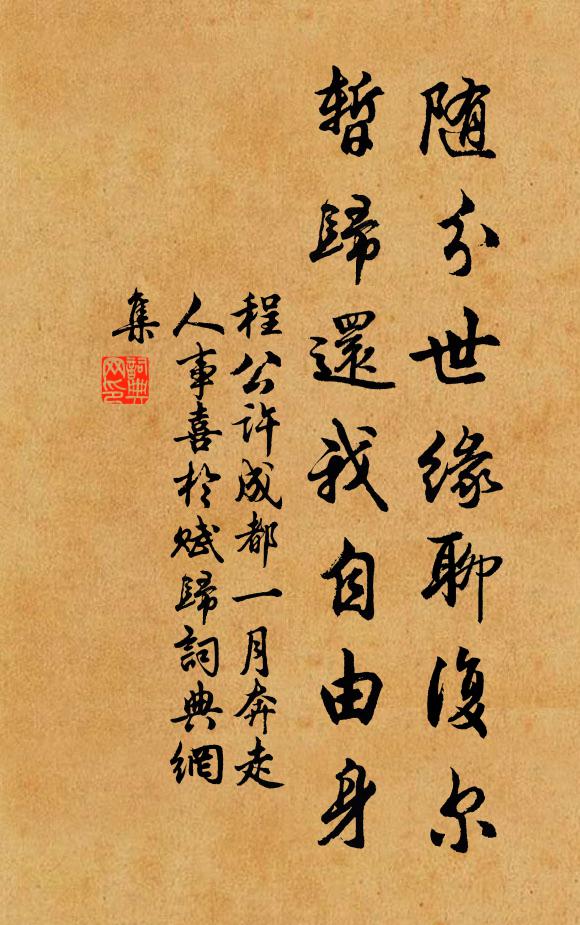 随分世緣聊復尔
暫歸還我自由身
程公許成都一月奔走
人事喜於賦歸詞典網
集
詞典
网印